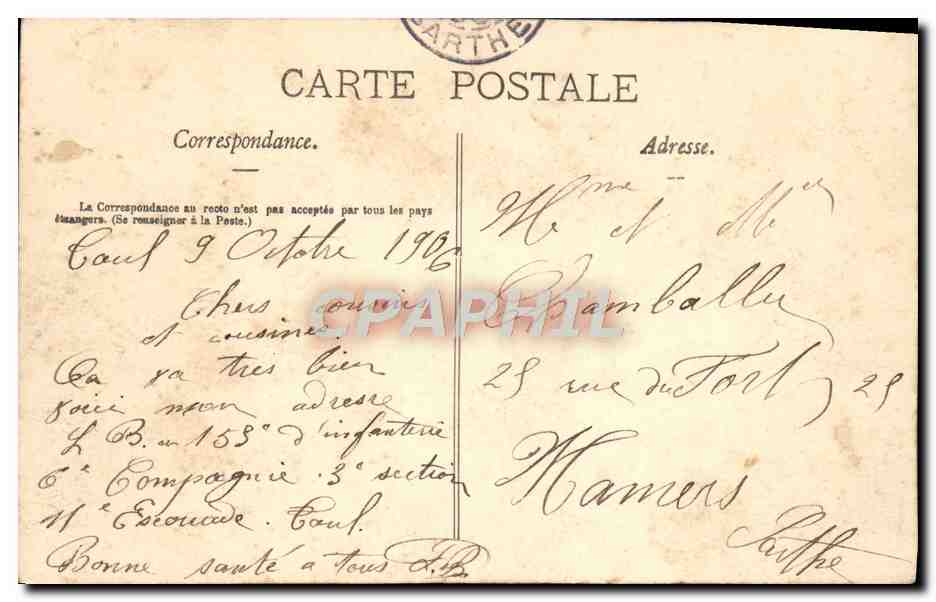 SARTHE
CARTE POSTALE
Correspondance.
La Correspondance au recto n'est pas acceptée par tous les pays
étrangers. (Se renseigner à la Poste.)
Toul 9 Octobre 1906
Chers cousins
et cousines
Ca va très bien
voici mon adresse
L B. au 153e d'infanterie
6e Compagnie. 3e section
11e Escouade. Toul.
Bonne santé à tous
Adresse.
Mme et Mr
Chamballu
25 rue du Fort, 25
Mamers
Sarthe
CPAPHIL